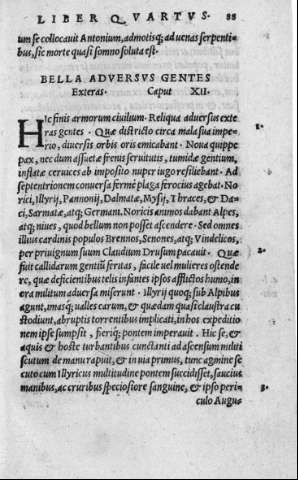 LIBER QVARTVS. 88
tum se collocauit Antonium, admotisq; ad uenas serpenti-
bus, sic morte quasi somno soluta est.
BELLA ADVERSVS GENTES
Exteras. Caput XII.
HIc finis armorum ciuilium. Reliqua aduersus exte
ras gentes. Quæ districto circa mala sua impe-
rio, diuersis orbis oris emicabant. Noua quippe
pax, nec dum assuetæ frenis seruitutis, tumidæ gentium,
inflatæ ceruices ab imposito nuper iugo resiliebant. Ad
septentrionem conuersa ferme plaga ferocius agebat. No-
rici, Illyrij, Pannonij, Dalmatæ, Mysij, Thraces, & Da-
ci, Sarmatæ, atq; Germani. Noricis animos dabant Alpes,
atq; niues, quo bellum non posset ascendere. Sed omnes
illius cardinis populos Brennos, Senones, atq; Vindelicos,
per priuignum suum Claudium Drusum pacauit. Quæ
fuit callidarum gentium feritas, facile uel mulieres ostende-
re, quæ deficientibus telis infantes ipsos afflictos humo, in
ora militum aduersa miserunt. Illyrij quoq; sub Alpibus
agunt, imasq; ualles earum, & quædam quasi claustra cu
stodiunt, abruptis torrentibus implicati, in hos expeditio
nem ipse sumpsit, fieriq; pontem imperauit. Hic se, &
aquis & hoste turbantibus cunctanti ad ascensum militi
scutum de manu rapuit, & in uia primus, tunc agmine se
cuto cum Illyricus multitudine pontem succidisset, saucius
manibus, ac cruribus speciosiore sanguine, & ipso peri-
culo Augu-
1.
2.
3.